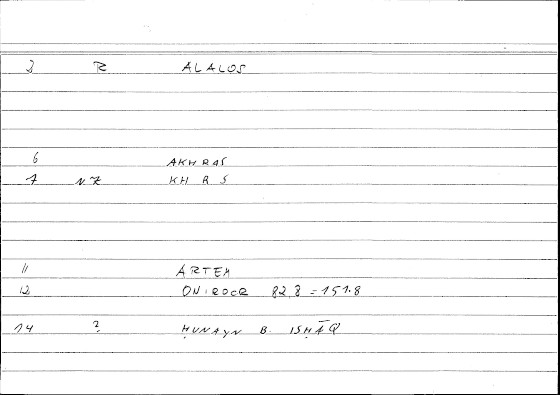 3 R ALALOS
6 AKHRAS
7 NZ KH R S
11 ARTEM
12 ONIROCR 82,8 = 151.8
14 ? ḤUNAYN B. ISḤĀQ